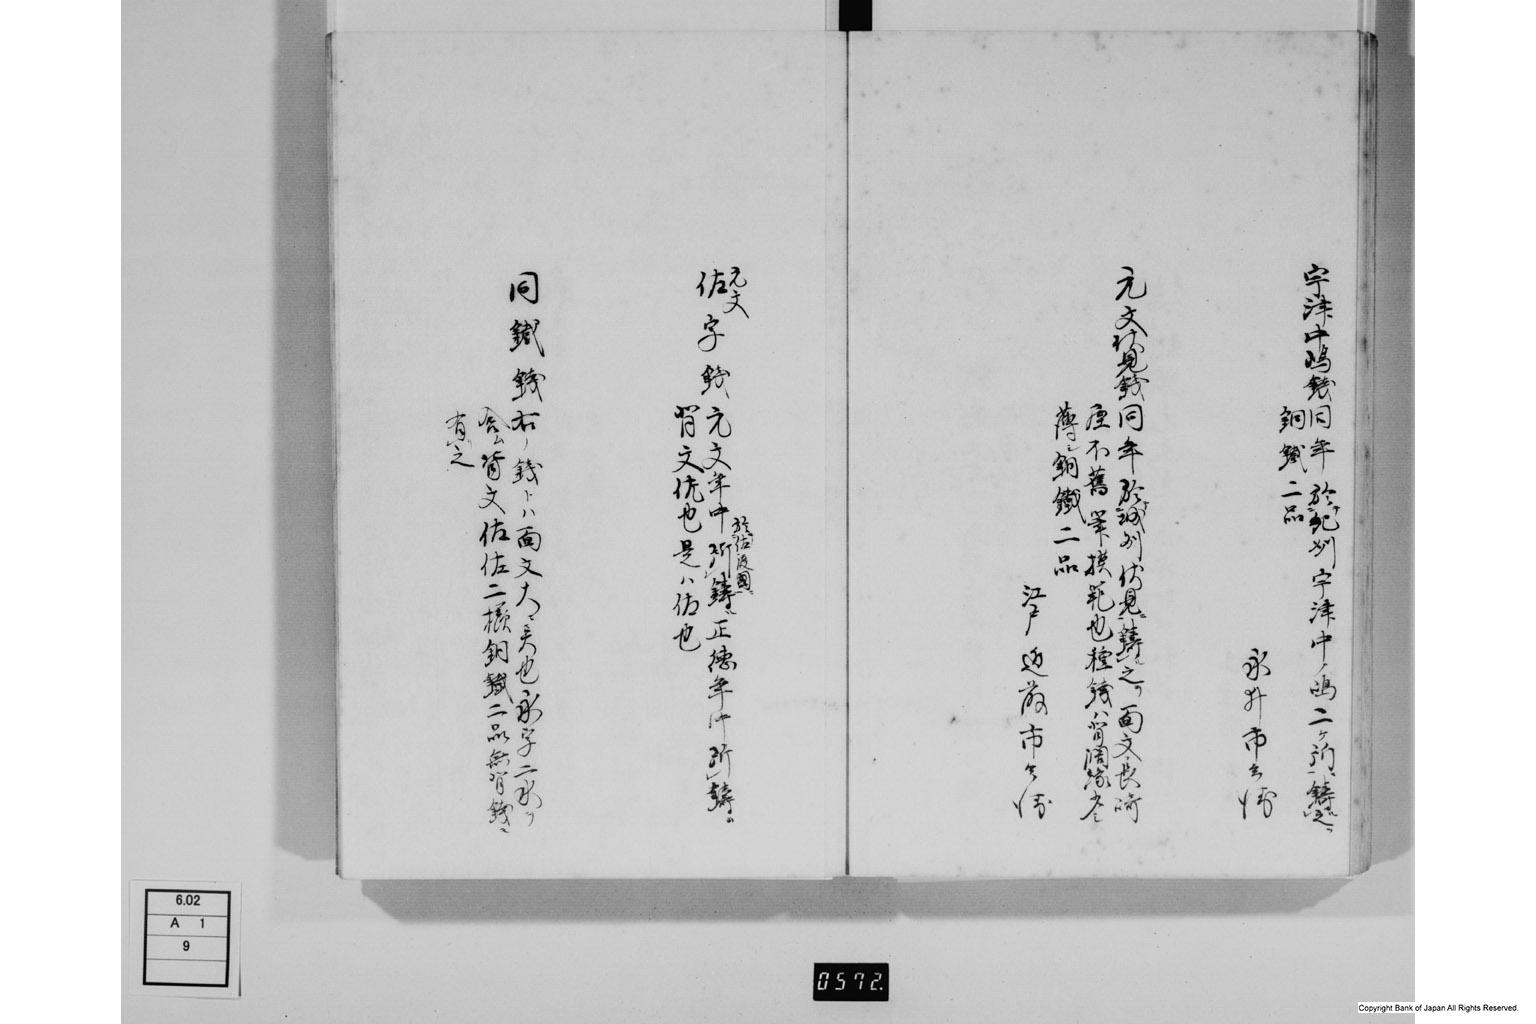 宇津中嶋銭同年於紀州宇津中ノ嶋二ヶ所鋳之
銅鐵二品
永井市兵衛
元文伏見銭同年於城州伏見鋳之面文長崎
座不舊筆模範也種銭ハ背濶縁
薄シ銅鐵二品
江戸近藤市兵衛
元文
佐字銭元文年中於佐渡國所鋳正徳年中所鋳
背文佐也是ハ佐也
同鐵銭右ノ銭トハ面文大ニ異也永字二永
含ム背文佐佐二様銅鐵二品無背銭
有之
6.02
A 1
9
0572.
Copyright Bank of Japan All Rights Reserved.